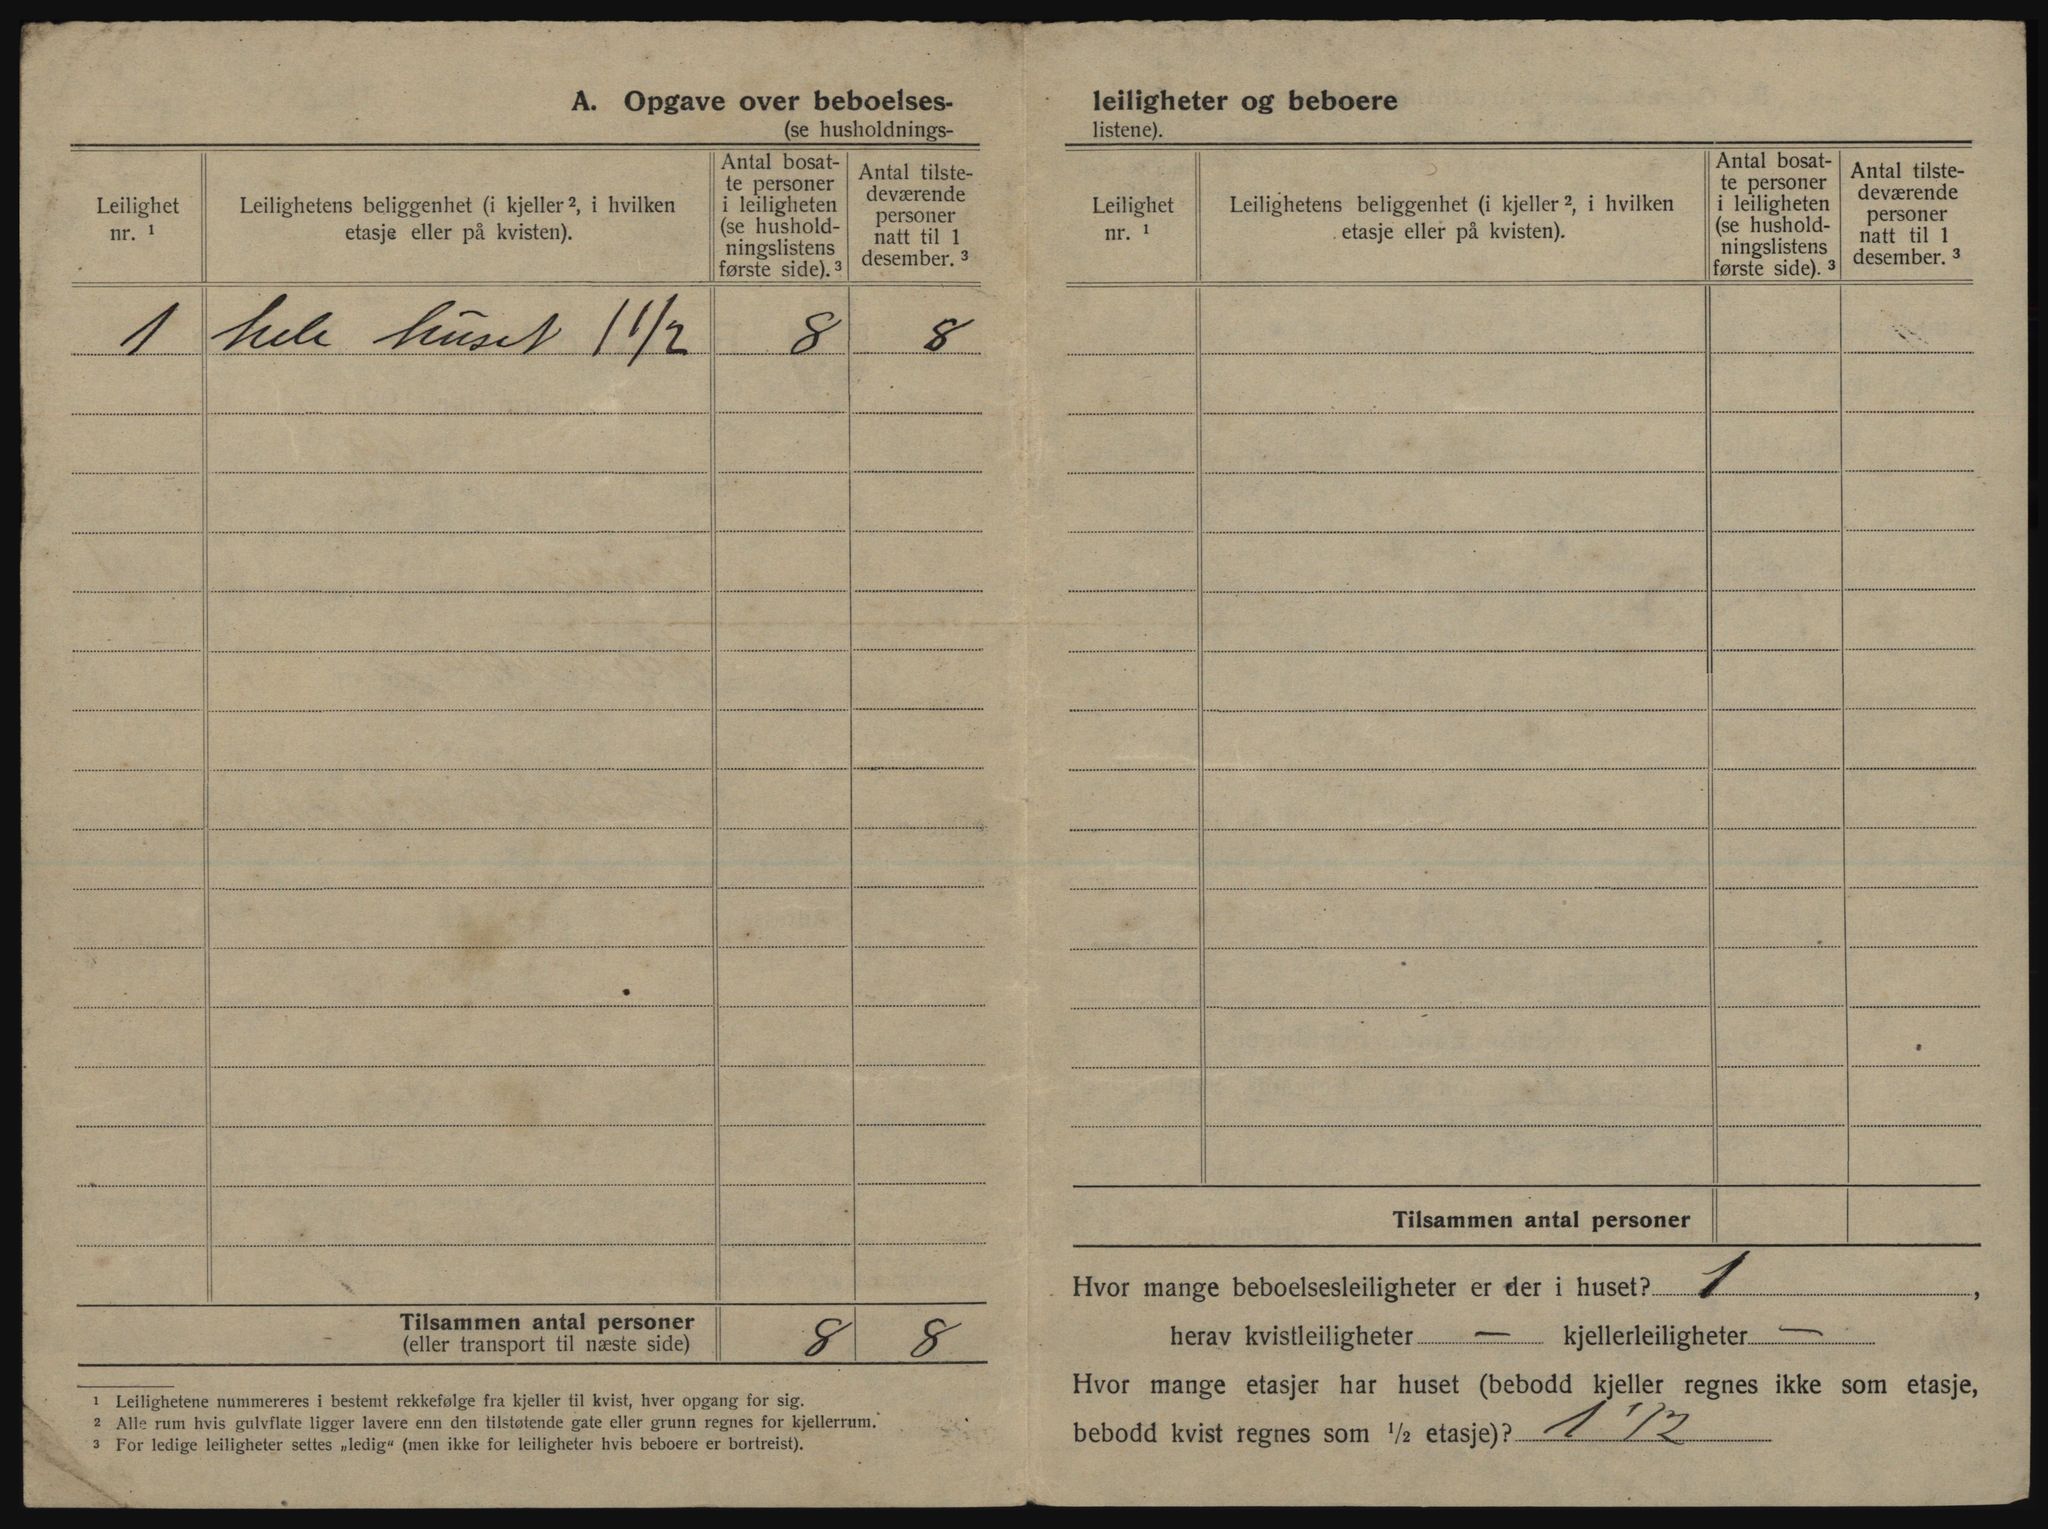 A. Opgave over beboelses-
(se husholdnings-
Leilighet nr. ¹
Leilighetens beliggenhet (i kjeller ², i hvilken
etasje eller på kvisten).
Antal bosat-
te personer
i leiligheten
(se hushold-
ningslistens
første side). ³
Antal tilste-
deværende
personer
natt til 1
desember. ³
1 hele huset 1 1/2 8 8
Tilsammen antal personer 8 8
(eller transport til næste side)
¹ Leilighetene nummereres i bestemt rekkefølge fra kjeller til kvist, hver opgang for sig.
² Alle rum hvis gulvflate ligger lavere enn den tilstøtende gate eller grunn regnes for kjellerrum.
³ For ledige leiligheter settes „ledig“ (men ikke for leiligheter hvis beboere er bortreist).
leiligheter og beboere
listene).
Leilighet nr. ¹
Leilighetens beliggenhet (i kjeller ², i hvilken
etasje eller på kvisten).
Antal bosat-
te personer
i leiligheten
(se hushold-
ningslistens
første side). ³
Antal tilste-
deværende
personer
natt til 1
desember. ³
Tilsammen antal personer
Hvor mange beboelsesleiligheter er der i huset? 1 ,
herav kvistleiligheter — kjellerleiligheter —
Hvor mange etasjer har huset (bebodd kjeller regnes ikke som etasje,
bebodd kvist regnes som ½ etasje)? 1 1/2